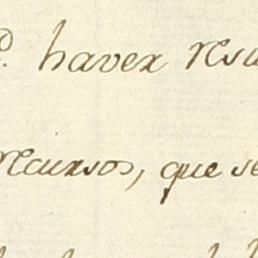 haver resu
recursos, que se